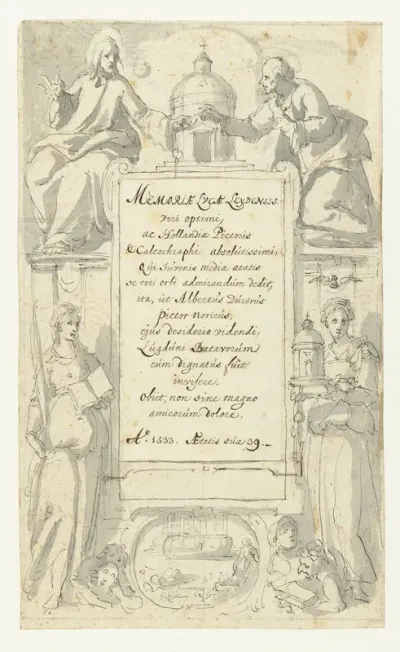 MEMORIÆ LVCÆ LEYDENSIS
viri optimi,
ac Hollandiæ Pictoris
& Calcochraphi absolutissimi,
Qui Iuvenis media ætatis
se toti orbi admirandum dedit,
ita, ut Albertus Durerus
pictor noricus,
ejus desiderio videndi,
Lugduni Batavorum
eum dignatus fuit
invisere.
Obijt, non sine magno
amicorum dolore,
Aº. 1533. Ætatis suæ 39.-